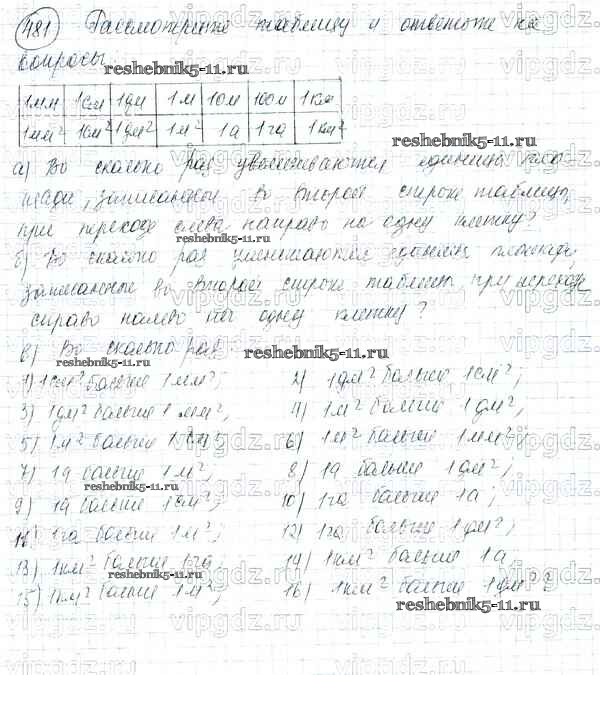 481 Рассмотрите таблицу и ответьте на
вопросы
reshebnik5-11.ru
1мм 1см 1дм 1м 10м 100м 1км
1мм² 1см² 1дм² 1м² 1а 1га 1км²
reshebnik5-11.ru
а) Во сколько раз увеличиваются единицы пло
щади, записанные во второй строке таблицы,
при переходе слева направо на одну клетку?
reshebnik5-11.ru
б) Во сколько раз уменьшаются единицы площади,
записанные во второй строке таблицы, при переходе
справо налево на одну клетку?
в) Во сколько раз
reshebnik5-11.ru
reshebnik5-11.ru
1) 1см² больше 1мм²; 2) 1дм² больше 1см²;
3) 1дм² больше 1мм²; 4) 1м² больше 1дм²;
5) 1м² больше 1см²; 6) 1м² больше 1мм²;
7) 1а больше 1м²; 8) 1а больше 1дм²;
reshebnik5-11.ru
9) 1а больше 1см²; 10) 1га больше 1а;
11) 1га больше 1м²; 12) 1га больше 1дм²;
13) 1км² больше 1га; 14) 1км² больше 1а
reshebnik5-11.ru
15) 1км² больше 1м²; 16) 1км² больше 1дм²?
reshebnik5-11.ru
vipgdz.ru